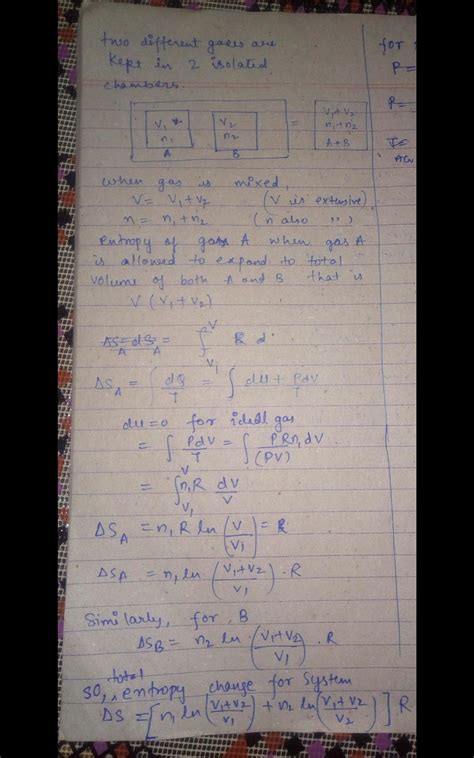 two different gases are
kept in 2 isolated
chambers.
V₁
n₁
A
V₂
n₂
B
=
V₁+V₂
n₁+n₂
A+B
when gas is mixed,
V = V₁+V₂ (V is extensive)
n = n₁+n₂ (n also ,, )
Entropy of gas A when gas A
is allowed to expand to total
volume of both A and B that is
V (V₁+V₂)
ΔS_A = ∫ dQ/T = ∫ (dU + PdV)/T
du=0 for ideal gas
= ∫ PdV/T = ∫ PRn₁dV/(PV)
= ∫_{V₁}^{V} n₁R dV/V
ΔS_A = n₁ R ln (V/V₁) = R
ΔS_A = n₁ ln ((V₁+V₂)/V₁) . R
Similarly, for B
ΔS_B = n₂ ln ((V₁+V₂)/V₁) . R
So, total entropy change for system
ΔS = [n₁ ln ((V₁+V₂)/V₁) + n₂ ln ((V₁+V₂)/V₂)] R
for
P =
P =